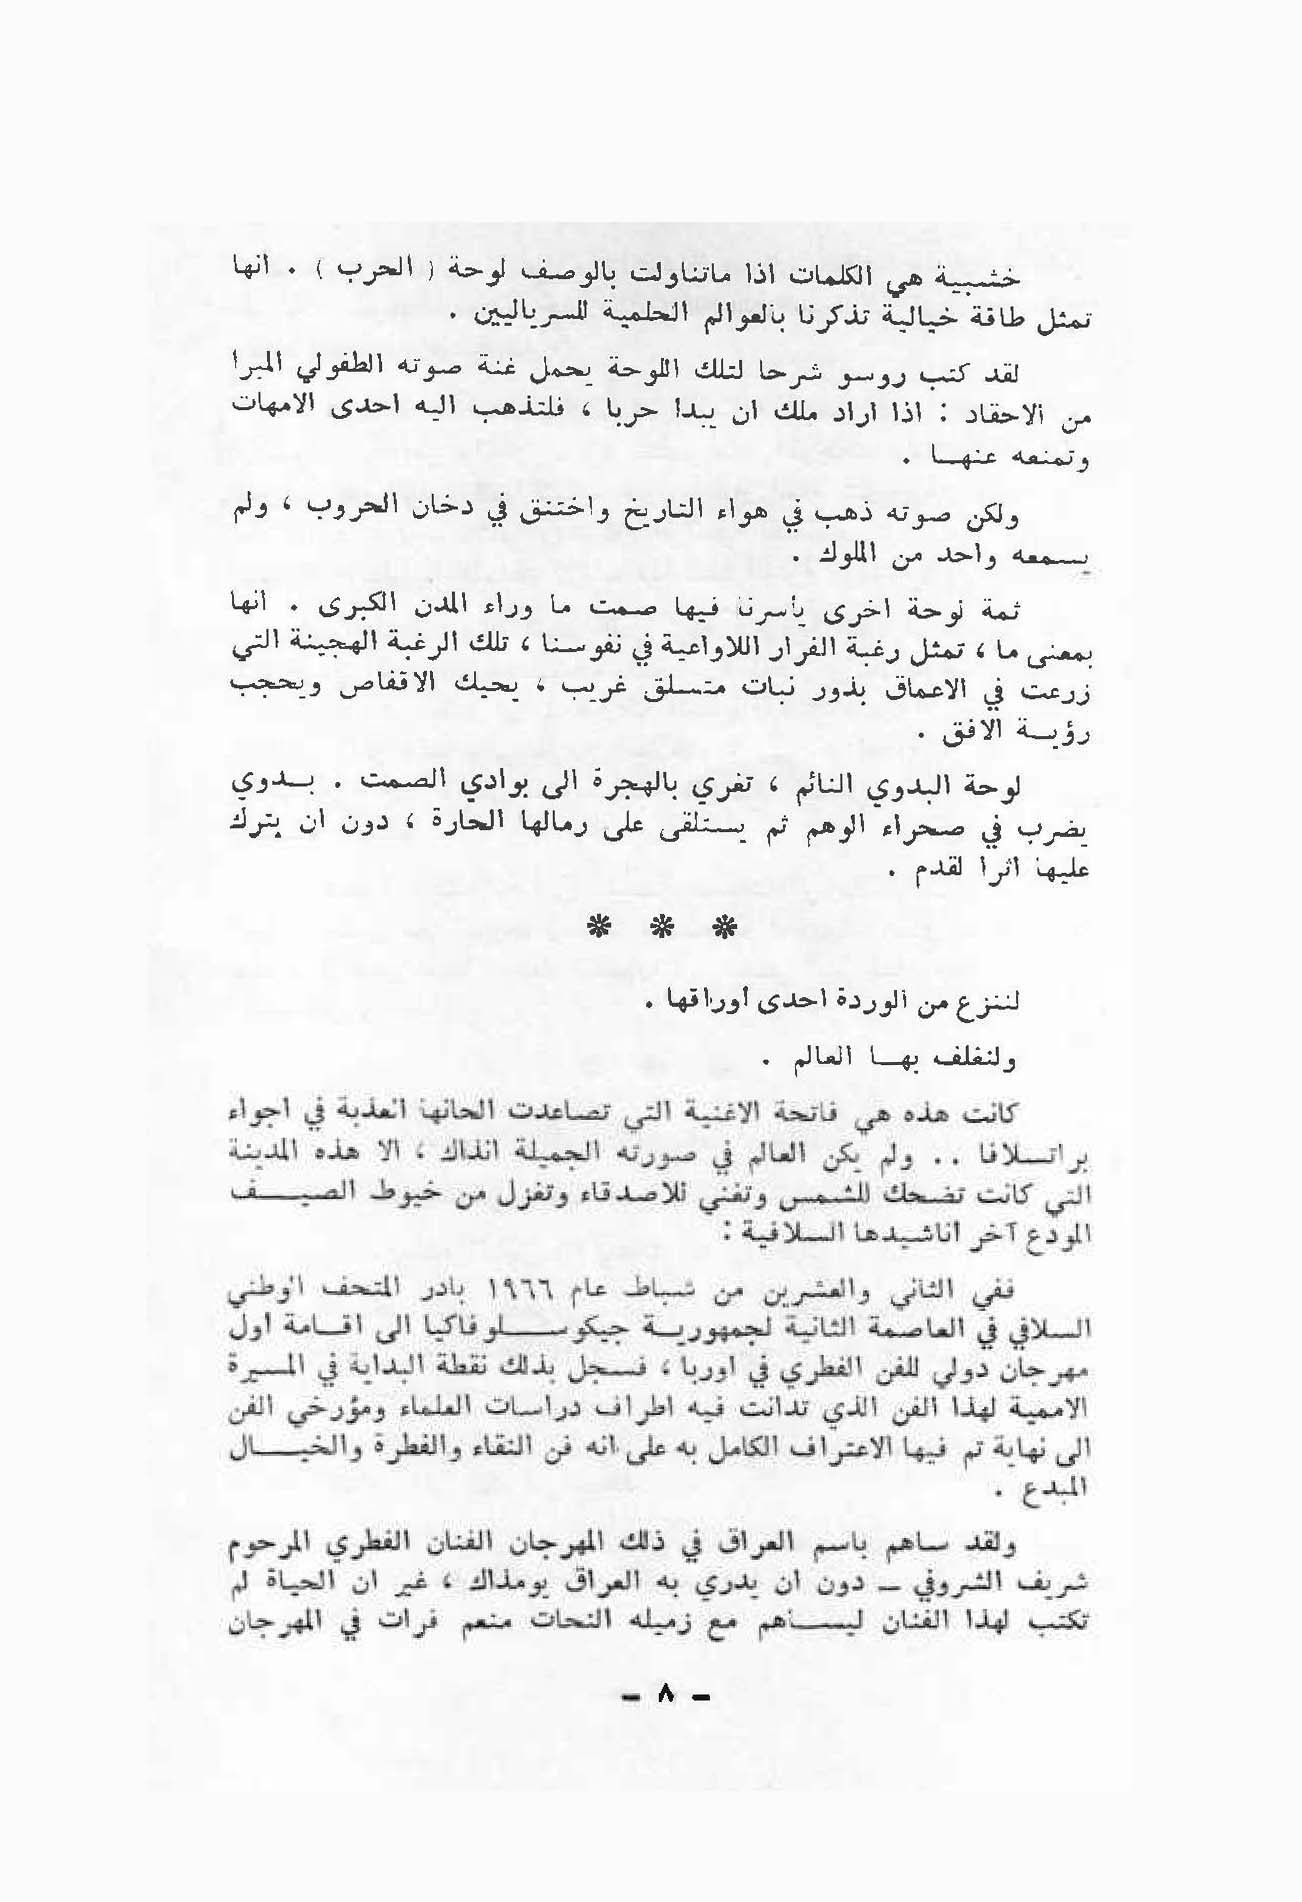 خشبية هي الكلمات اذا ماتناولت بالوصف لوحة ( الحرب ) . انها
تمثل طاقة خيالية تذكرنا بالعوالم الحلمية للسرياليين .
لقد كتب روسو شرحا لتلك اللوحة يحمل غنة صوته الطفولي المبرا
من الاحقاد : اذا اراد ملك ان يبدا حربا ، فلتذهب اليه احدى الامهات
وتمنعه عنهـا .
ولكن صوته ذهب في هواء التاريخ واختنق في دخان الحروب ، ولم
يسمعه واحد من الملوك .
ثمة لوحة اخرى يأسرنا فيها صمت ما وراء المدن الكبرى . انها
بمعنى ما ، تمثل رغبة الفرار اللاواعية في نفوسنا ، تلك الرغبة الهجينة التي
زرعت في الاعماق بذور نبات متسلق غريب ، يحيك الاقفاص ويحجب
رؤيـة الافق .
لوحة البدوي النائم ، تغري بالهجرة الى بوادي الصمت . بـدوي
يضرب في صحراء الوهم ثم يستلقى على رمالها الحارة ، دون ان يترك
عليها اثرا لقدم .
* * *
لننزع من الوردة احدى أوراقها .
ولنغلف بهـا العالم .
كانت هذه هي فاتحة الاغنية التي تصاعدت الحانها العذبة في اجواء
براتسلافا .. ولم يكن العالم في صورته الجميلة انذاك ، الا هذه المدينة
التي كانت تضحك للشمس وتغني للاصدقاء وتغزل من خيوط الصيـف
المودع آخر اناشيدها السلافية :
ففي الثاني والعشرين من شباط عام ١٩٦٦ بادر المتحف الوطني
السلافي في العاصمة الثانية لجمهوريـة جيكوسـلوفاكيا الى اقـامة اول
مهرجان دولي للفن الفطري في اوربا ، فسجل بذلك نقطة البداية في المسيرة
الاممية لهذا الفن الذي تدانت فيه اطراف دراسات العلماء ومؤرخي الفن
الى نهاية تم فيها الاعتراف الكامل به على انه فن النقاء والفطرة والخيـال
المبدع .
ولقد ساهم باسم العراق في ذلك المهرجان الفنان الفطري المرحوم
شريف الشروفي ــ دون ان يدري به العراق يومذاك ، غير ان الحياة لم
تكتب لهذا الفنان ليسـاهم مع زميله النحات منعم فرات في المهرجان
- ٨ -